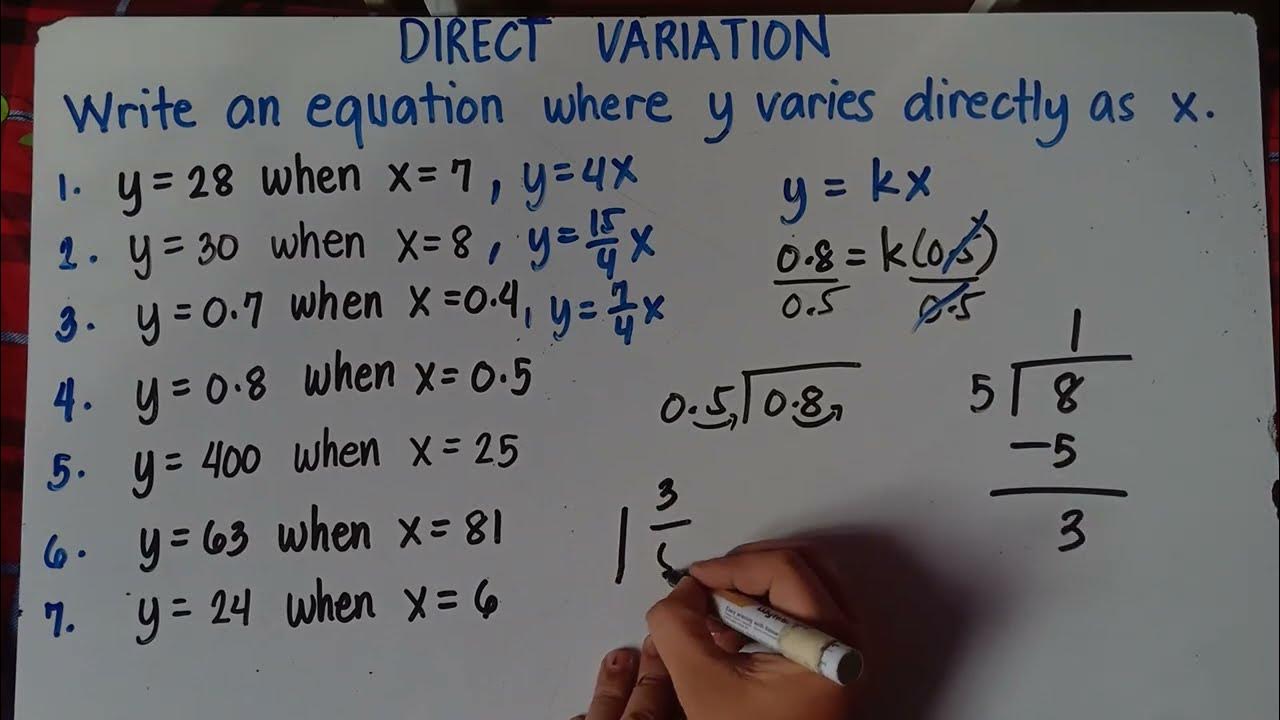 DIRECT VARIATION
Write an equation where y varies directly as x.
1. y = 28 when x = 7, y = 4x
2. y = 30 when x = 8, y = 15/4 x
3. y = 0.7 when x = 0.4, y = 7/4 x
4. y = 0.8 when x = 0.5
5. y = 400 when x = 25
6. y = 63 when x = 81
7. y = 24 when x = 6
y = kx
0.8 = k(0.5)
0.5 0.5
0.5 0.8
1
5 8
-5
3
1 3